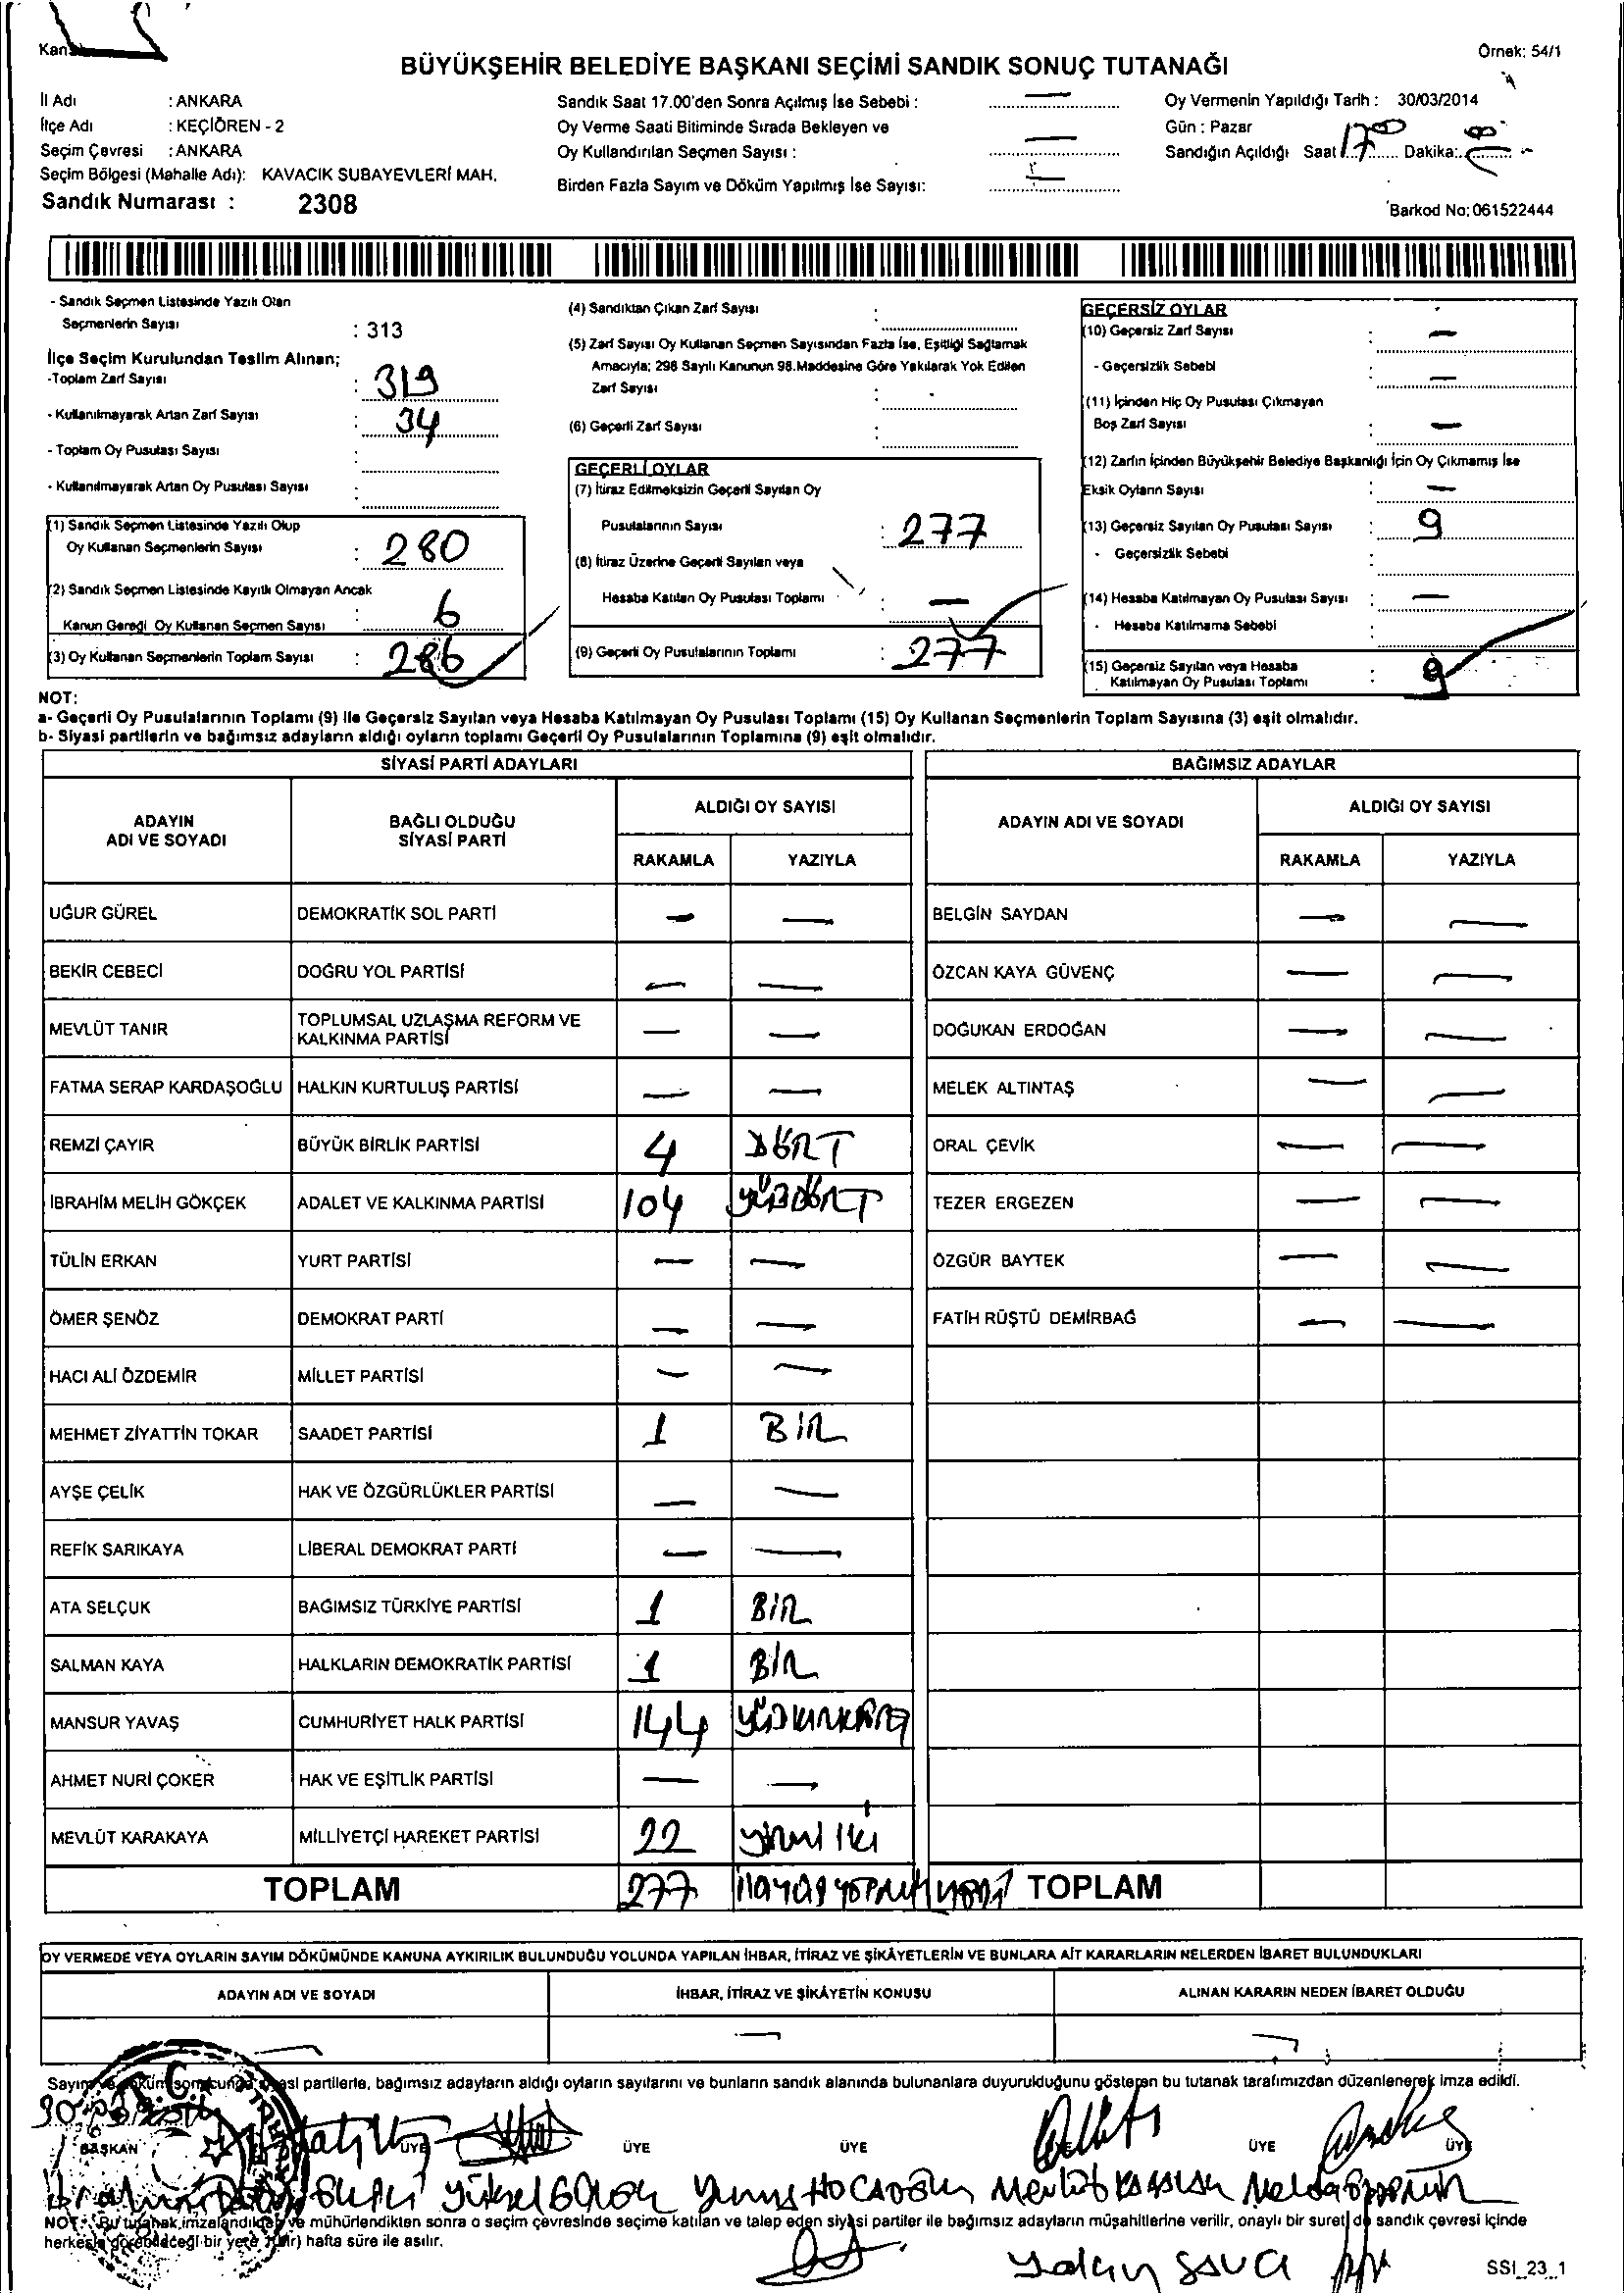 Örnek: 54/1
BÜYÜKŞEHİR BELEDİYE BAŞKANI SEÇİMİ SANDIK SONUÇ TUTANAĞI
İl Adı : ANKARA
İlçe Adı : KEÇİÖREN - 2
Seçim Çevresi : ANKARA
Seçim Bölgesi (Mahalle Adı): KAVACIK SUBAYEVLERİ MAH.
Sandık Numarası : 2308
Sandık Saat 17.00'den Sonra Açılmış İse Sebebi : —
Oy Verme Saati Bitiminde Sırada Bekleyen ve
Oy Kullandırılan Seçmen Sayısı : —
Birden Fazla Sayım ve Döküm Yapılmış İse Sayısı:
Oy Vermenin Yapıldığı Tarih : 30/03/2014
Gün : Pazar
Sandığın Açıldığı Saat 17 Dakika:
Barkod No: 061522444
- Sandık Seçmen Listesinde Yazılı Olan
Seçmenlerin Sayısı : 313
İlçe Seçim Kurulundan Teslim Alınan;
-Toplam Zarf Sayısı : 319
- Kullanılmayarak Artan Zarf Sayısı : 34
- Toplam Oy Pusulası Sayısı :
- Kullanılmayarak Artan Oy Pusulası Sayısı :
(1) Sandık Seçmen Listesinde Yazılı Olup
Oy Kullanan Seçmenlerin Sayısı : 280
(2) Sandık Seçmen Listesinde Kayıtlı Olmayan Ancak
Kanun Gereği Oy Kullanan Seçmen Sayısı : 6
(3) Oy Kullanan Seçmenlerin Toplam Sayısı : 286
(4) Sandıktan Çıkan Zarf Sayısı :
(5) Zarf Sayısı Oy Kullanan Seçmen Sayısından Fazla İse, Eşitliği Sağlamak
Amacıyla; 298 Sayılı Kanunun 98.Maddesine Göre Yakılarak Yok Edilen
Zarf Sayısı :
(6) Geçerli Zarf Sayısı :
GEÇERLİ OYLAR
(7) İtiraz Edilmeksizin Geçerli Sayılan Oy
Pusulalarının Sayısı : 277
(8) İtiraz Üzerine Geçerli Sayılan veya
Hesaba Katılan Oy Pusulası Toplamı : —
(9) Geçerli Oy Pusulalarının Toplamı : 277
GEÇERSİZ OYLAR
(10) Geçersiz Zarf Sayısı : —
- Geçersizlik Sebebi : —
(11) İçinden Hiç Oy Pusulası Çıkmayan
Boş Zarf Sayısı : —
(12) Zarfın İçinden Büyükşehir Belediye Başkanlığı İçin Oy Çıkmamış İse
Eksik Oyların Sayısı : —
(13) Geçersiz Sayılan Oy Pusulası Sayısı : 9
- Geçersizlik Sebebi :
(14) Hesaba Katılmayan Oy Pusulası Sayısı : —
- Hesaba Katılmama Sebebi :
(15) Geçersiz Sayılan veya Hesaba
Katılmayan Oy Pusulası Toplamı : 9
NOT:
a- Geçerli Oy Pusulalarının Toplamı (9) ile Geçersiz Sayılan veya Hesaba Katılmayan Oy Pusulası Toplamı (15) Oy Kullanan Seçmenlerin Toplam Sayısına (3) eşit olmalıdır.
b- Siyasi partilerin ve bağımsız adayların aldığı oyların toplamı Geçerli Oy Pusulalarının Toplamına (9) eşit olmalıdır.
SİYASİ PARTİ ADAYLARI
ADAYIN ADI VE SOYADI BAĞLI OLDUĞU SİYASİ PARTİ ALDIĞI OY SAYISI
RAKAMLA YAZIYLA
UĞUR GÜREL DEMOKRATİK SOL PARTİ — —
BEKİR CEBECİ DOĞRU YOL PARTİSİ — —
MEVLÜT TANIR TOPLUMSAL UZLAŞMA REFORM VE KALKINMA PARTİSİ — —
FATMA SERAP KARDAŞOĞLU HALKIN KURTULUŞ PARTİSİ — —
REMZİ ÇAYIR BÜYÜK BİRLİK PARTİSİ 4 DÖRT
İBRAHİM MELİH GÖKÇEK ADALET VE KALKINMA PARTİSİ 104 YÜZDÖRT
TÜLİN ERKAN YURT PARTİSİ — —
ÖMER ŞENÖZ DEMOKRAT PARTİ — —
HACI ALİ ÖZDEMİR MİLLET PARTİSİ — —
MEHMET ZİYATTİN TOKAR SAADET PARTİSİ 1 BİR
AYŞE ÇELİK HAK VE ÖZGÜRLÜKLER PARTİSİ — —
REFİK SARIKAYA LİBERAL DEMOKRAT PARTİ — —
ATA SELÇUK BAĞIMSIZ TÜRKİYE PARTİSİ 1 BİR
SALMAN KAYA HALKLARIN DEMOKRATİK PARTİSİ 1 BİR
MANSUR YAVAŞ CUMHURİYET HALK PARTİSİ 144
AHMET NURİ ÇOKER HAK VE EŞİTLİK PARTİSİ — —
MEVLÜT KARAKAYA MİLLİYETÇİ HAREKET PARTİSİ 22 yirmi iki
TOPLAM 277
BAĞIMSIZ ADAYLAR
ADAYIN ADI VE SOYADI ALDIĞI OY SAYISI
RAKAMLA YAZIYLA
BELGİN SAYDAN — —
ÖZCAN KAYA GÜVENÇ — —
DOĞUKAN ERDOĞAN — —
MELEK ALTINTAŞ — —
ORAL ÇEVİK — —
TEZER ERGEZEN — —
ÖZGÜR BAYTEK — —
FATİH RÜŞTÜ DEMİRBAĞ — —
TOPLAM
OY VERMEDE VEYA OYLARIN SAYIM DÖKÜMÜNDE KANUNA AYKIRILIK BULUNDUĞU YOLUNDA YAPILAN İHBAR, İTİRAZ VE ŞİKÂYETLERİN VE BUNLARA AİT KARARLARIN NELERDEN İBARET BULUNDUKLARI
ADAYIN ADI VE SOYADI İHBAR, İTİRAZ VE ŞİKÂYETİN KONUSU ALINAN KARARIN NEDEN İBARET OLDUĞU
— — —
partilerle, bağımsız adayların aldığı oyların sayılarını ve bunların sandık alanında bulunanlara duyurulduğunu gösteren bu tutanak tarafımızdan düzenlenerek imza edildi.
T.C.
BAŞKAN ÜYE ÜYE ÜYE ÜYE ÜYE
Yunus HOCAOĞLU
NOT: Bu tutanak imzalandıktan ve mühürlendikten sonra o seçim çevresinde seçime katılan ve talep eden siyasi partiler ile bağımsız adayların müşahitlerine verilir, onaylı bir sureti de sandık çevresi içinde
herkesin görebileceği bir yere hafta süre ile asılır.
Yalçın
SSI_23_1